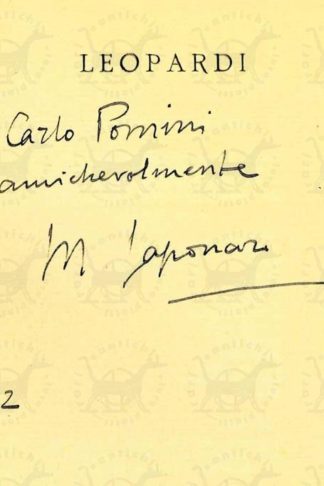 LEOPARDI
Carlo Pomini
amichevolmente
M. Saponaro
2